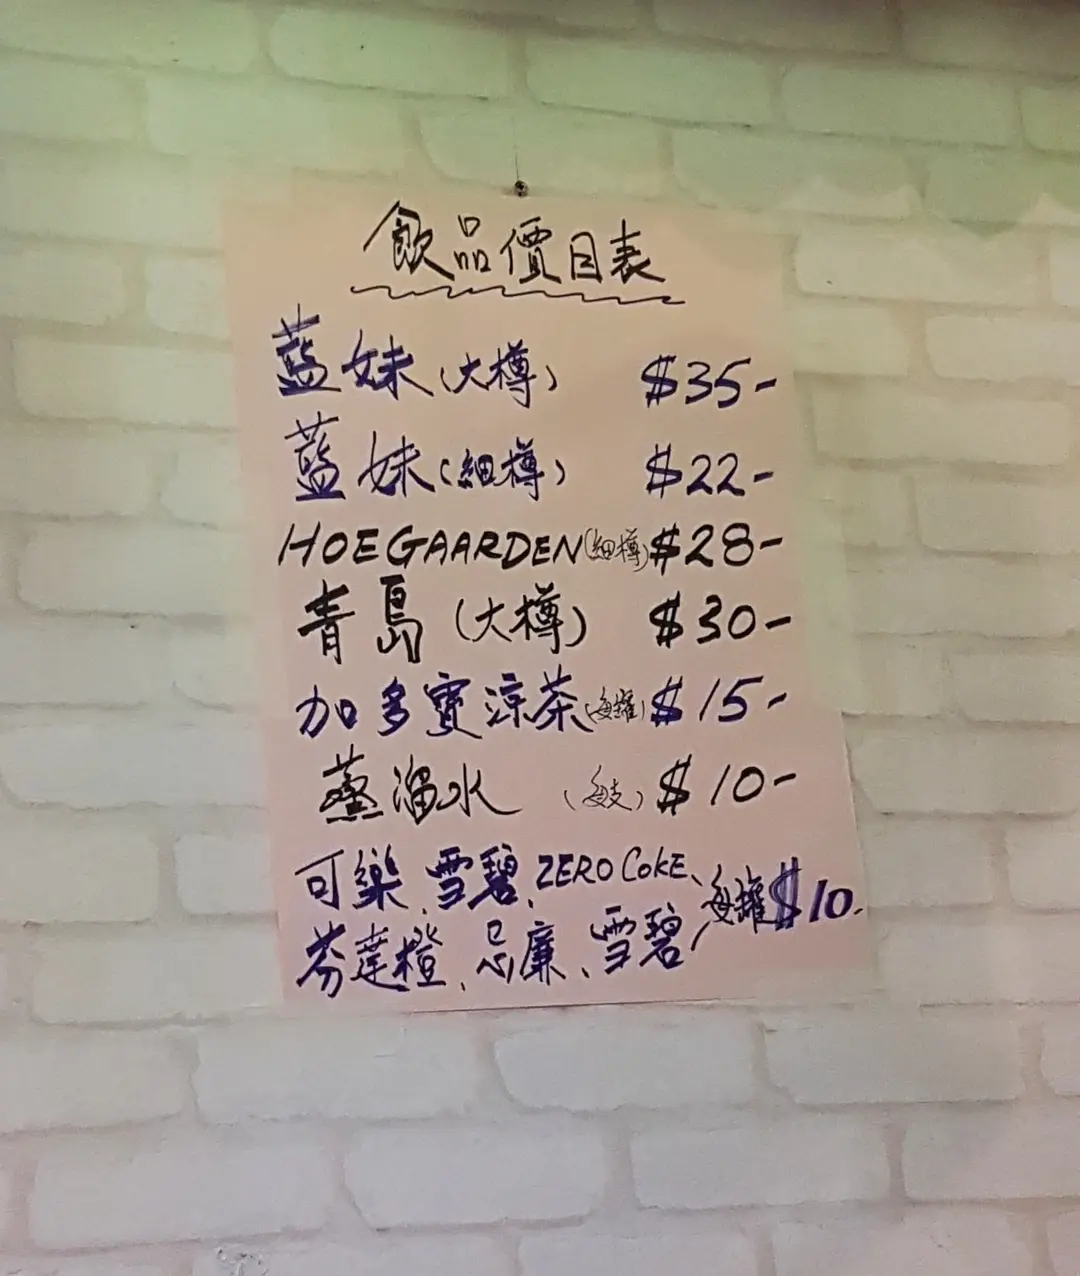 飲品價目表
藍妹(大樽) $35-
藍妹(細樽) $22-
HOEGAARDEN(細樽) $28-
青島(大樽) $30-
加多寶涼茶(每罐) $15-
蒸溜水 (每支) $10-
可樂、雪碧、ZERO COKE、
芬達橙、忌廉、雪碧, 每罐$10.